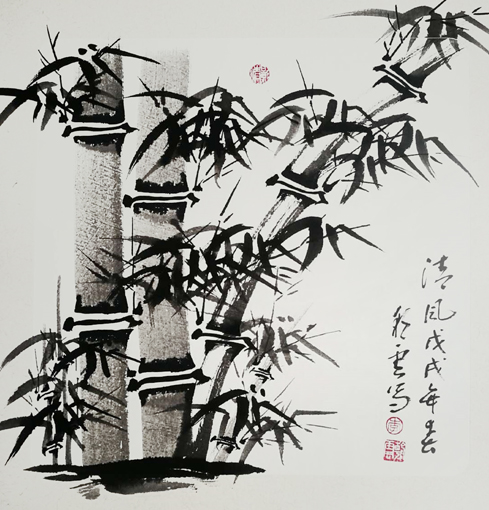 清风戊戌年春
彩云写